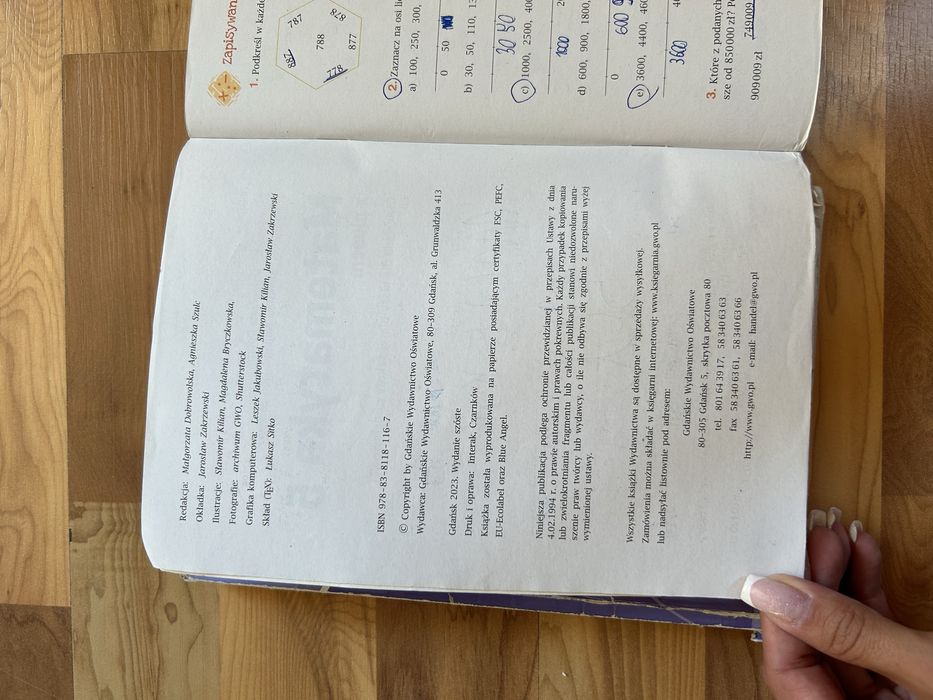 Redakcja: Małgorzata Dobrowolska, Agnieszka Szulc
Okładka: Jarosław Zakrzewski
Ilustracje: Sławomir Kilian, Magdalena Bryczkowska,
Fotografie: archiwum GWO, Shutterstock
Grafika komputerowa: Leszek Jakubowski, Sławomir Kilian, Jarosław Zakrzewski
Skład (TEX): Łukasz Sitko
ISBN 978-83-8118-116-7
© Copyright by Gdańskie Wydawnictwo Oświatowe
Wydawca: Gdańskie Wydawnictwo Oświatowe, 80-309 Gdańsk, al. Grunwaldzka 413
Gdańsk 2023. Wydanie szóste
Druk i oprawa: Interak, Czarnków
Książka została wyprodukowana na papierze posiadającym certyfikaty FSC, PEFC,
EU-Ecolabel oraz Blue Angel.
Niniejsza publikacja podlega ochronie przewidzianej w przepisach Ustawy z dnia
4.02.1994 r. o prawie autorskim i prawach pokrewnych. Każdy przypadek kopiowania
lub zwielokrotniania fragmentu lub całości publikacji stanowi niedozwolone naru-
szenie praw twórcy lub wydawcy, o ile nie odbywa się zgodnie z przepisami wyżej
wymienionej ustawy.
Wszystkie książki Wydawnictwa są dostępne w sprzedaży wysyłkowej.
Zamówienia można składać w księgarni internetowej: www.ksiegarnia.gwo.pl
lub nadsyłać listownie pod adresem:
Gdańskie Wydawnictwo Oświatowe
80-305 Gdańsk 5, skrytka pocztowa 80
tel. 801 64 39 17, 58 340 63 63
fax 58 340 63 61, 58 340 63 66
http://www.gwo.pl e-mail: handel@gwo.pl
Zapisywan
1. Podkreśl w każd
787 878
887 788
778 877
2. Zaznacz na osi li
a) 100, 250, 300,
0 50
b) 30, 50, 110, 13
30 40
c) 1000, 2500, 400
1000
d) 600, 900, 1800,
0 600
e) 3600, 4400, 460
3600
3. Które z podanych
sze od 850 000 zł?
749 009
909 009 zł